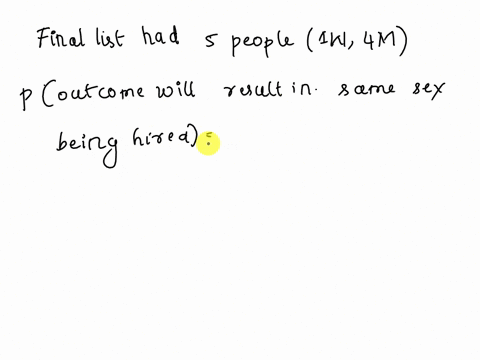 Final list had 5 people (1W, 4M)
p (outcome will result in. same sex
being hired) =